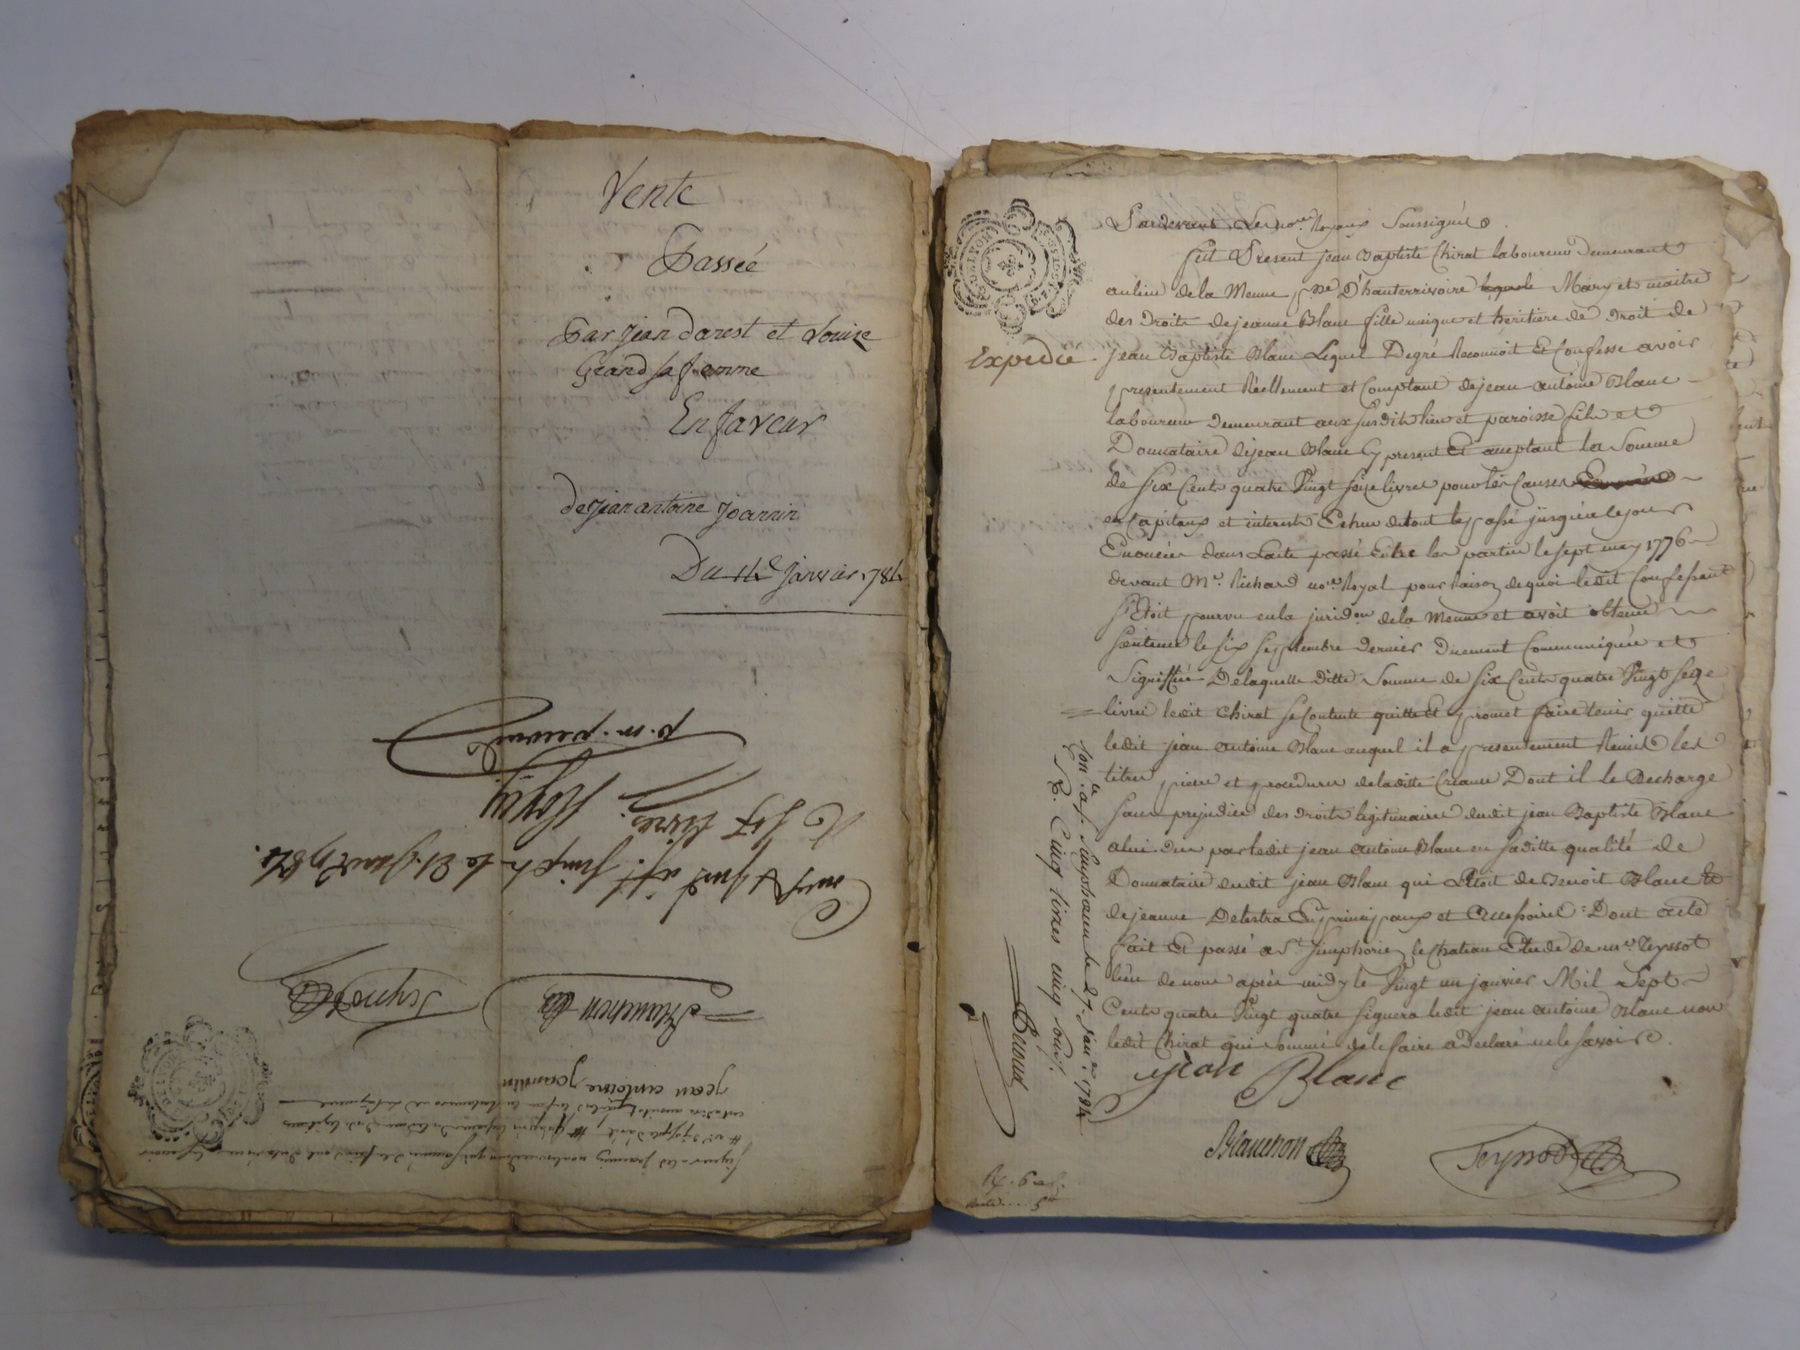 Vente
Passée
Par jean darest et Louise
Grand sa femme
En faveur
de jean antoine joannin
Du 14e janvier 1784
p. m.
R. livres
le 21 janv. 1784.
Blanchon
Teyssot
jean antoine joannin
Pardevant Les no.res Royaux Soussignés
fut Present jean Baptiste Chirat laboureur demeurant
au lieu de la Menue p.sse D'hauterrivoire Mary et maitre
des Droits de jeanne Blanc fille unique et heritiere de Droit de
Expedié
jean Baptiste Blanc Lequel Degré Reconnoit et Confesse avoir
presentement Réellement et Comptant de jean antoine Blanc
laboureur Demeurant aux susdits lieu et paroisse fils et
Donnataire de jean Blanc Cy present Et acceptant la Somme
de Six Cents quatre Vingt seize livres pour les Causes
en Capitaux et interests Echus de tout le passé jusqu'a ce jour
Enoncées dans L'acte passé Entre les parties le sept may 1776
devant Me. Richard no.re Royal pour Raison de quoi ledit Confessant
s'Etoit pourvu en la jurid.on de la Menue et avoit obtenu
Sentence le six septembre dernier duement Communiquée et
Signiffiée De laquelle ditte Somme de Six Cents quatre Vingt seize
livres ledit Chirat se Contente quitte et promet faire tenir quitte
ledit jean antoine Blanc auquel il a presentement Remis les
titres pieces et procedures de la ditte Creance Dont il le Decharge
Sans prejudice des Droits legitimaires dudit jean Baptiste Blanc
a lui dus par ledit jean antoine Blanc en sa ditte qualité de
Donnataire dudit jean Blanc qui L'Etoit de Benoit Blanc
de jeanne Delestra En principaux et accessoires : Dont acte
fait Et passé a St. Simphorien le Chateau Etude de me. Teyssot
l'un de nous après midy le Vingt un janvier Mil Sept
Cents quatre Vingt quatre signera ledit jean antoine Blanc non
ledit Chirat qui Sommé de le faire a Declaré ne le savoir.
jean Blanc
Blanchon
Teyssot
Con.lé a St. Simphorien le 27. Janv. 1784
R. Cinq livres cinq sous.